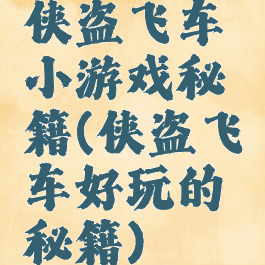 侠盗飞车
小游戏秘
籍(侠盗飞
车好玩的
秘籍)